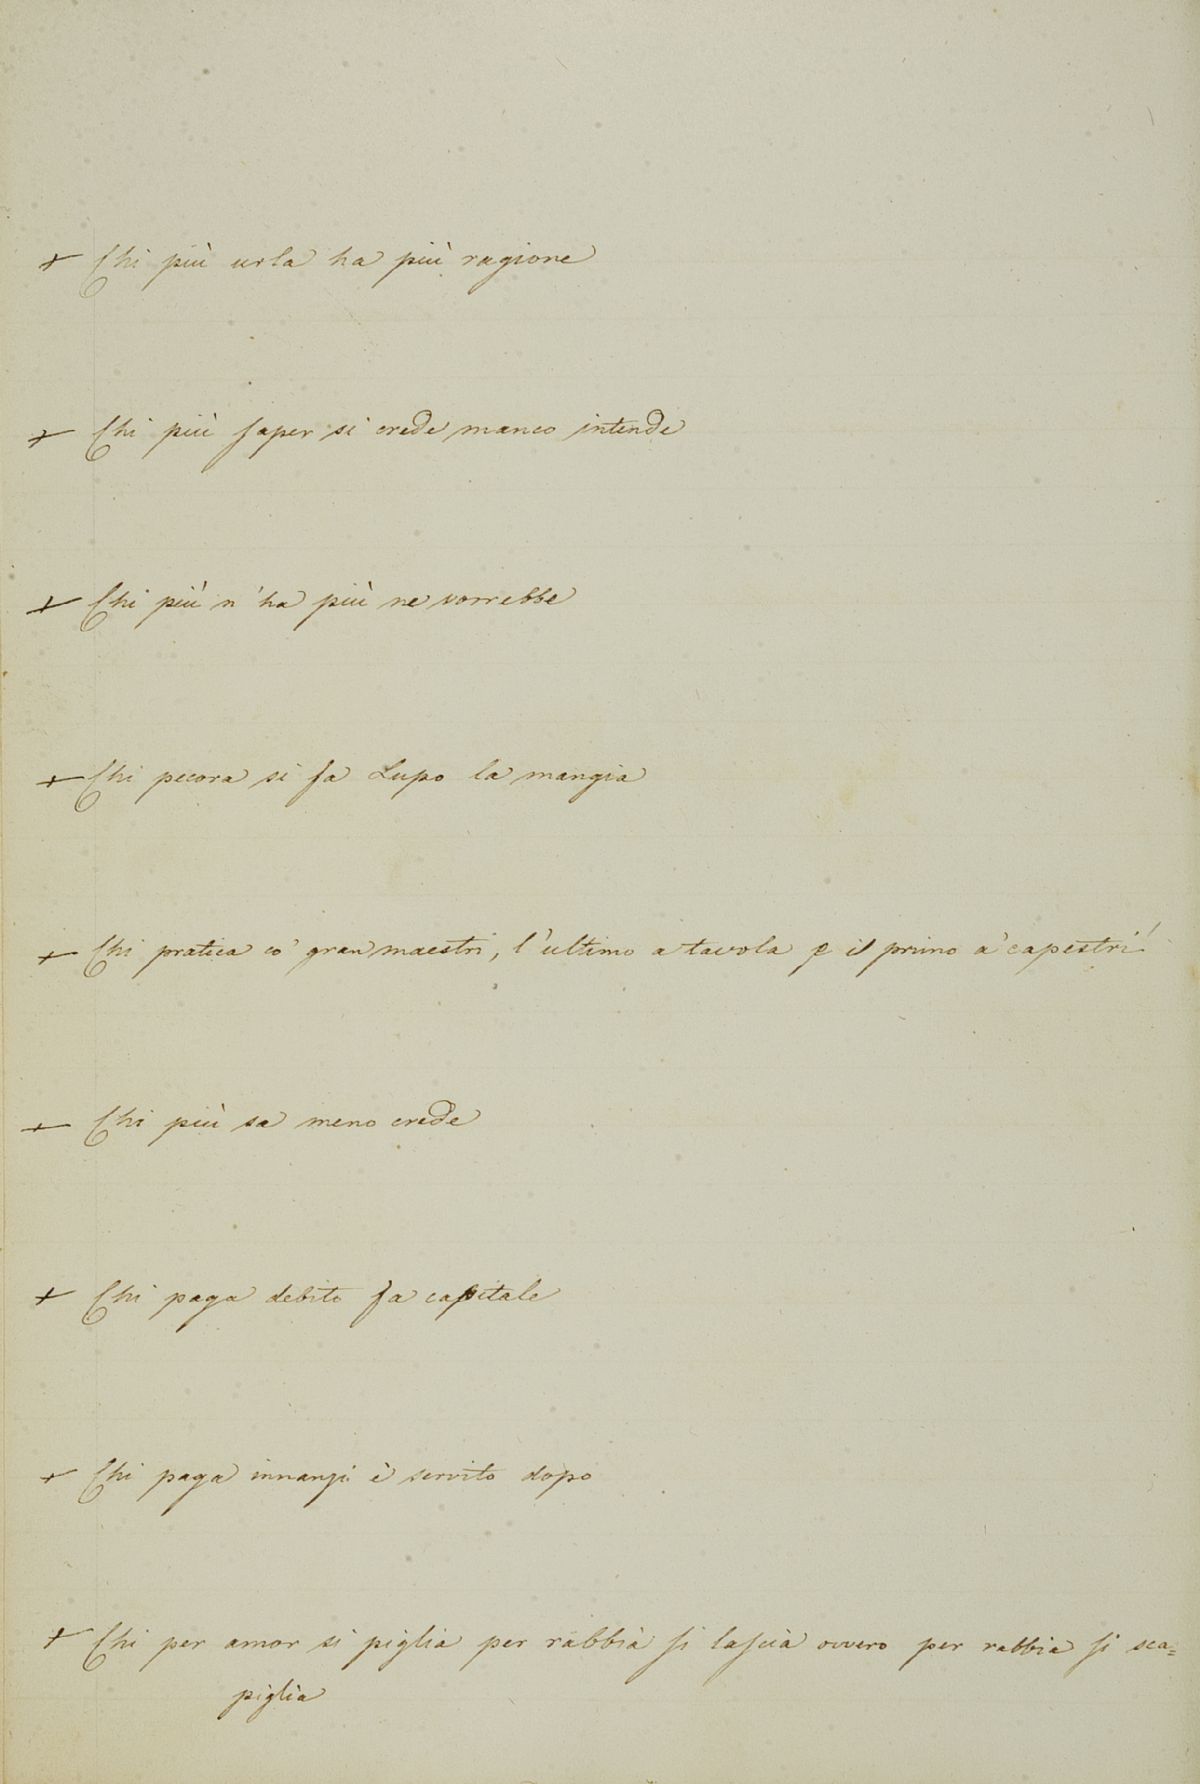 + Chi più urla ha più ragione
+ Chi più saper si crede manco intende
+ Chi più n'ha più ne vorrebbe
+ Chi pecora si fa Lupo la mangia
+ Chi pratica co' gran maestri, l'ultimo a tavola e il primo a' capestri
+ Chi più sa meno crede
+ Chi paga debito fa capitale
+ Chi paga innanzi è servito dopo
+ Chi per amor si piglia per rabbia si lascia ovvero per rabbia si sca=
piglia